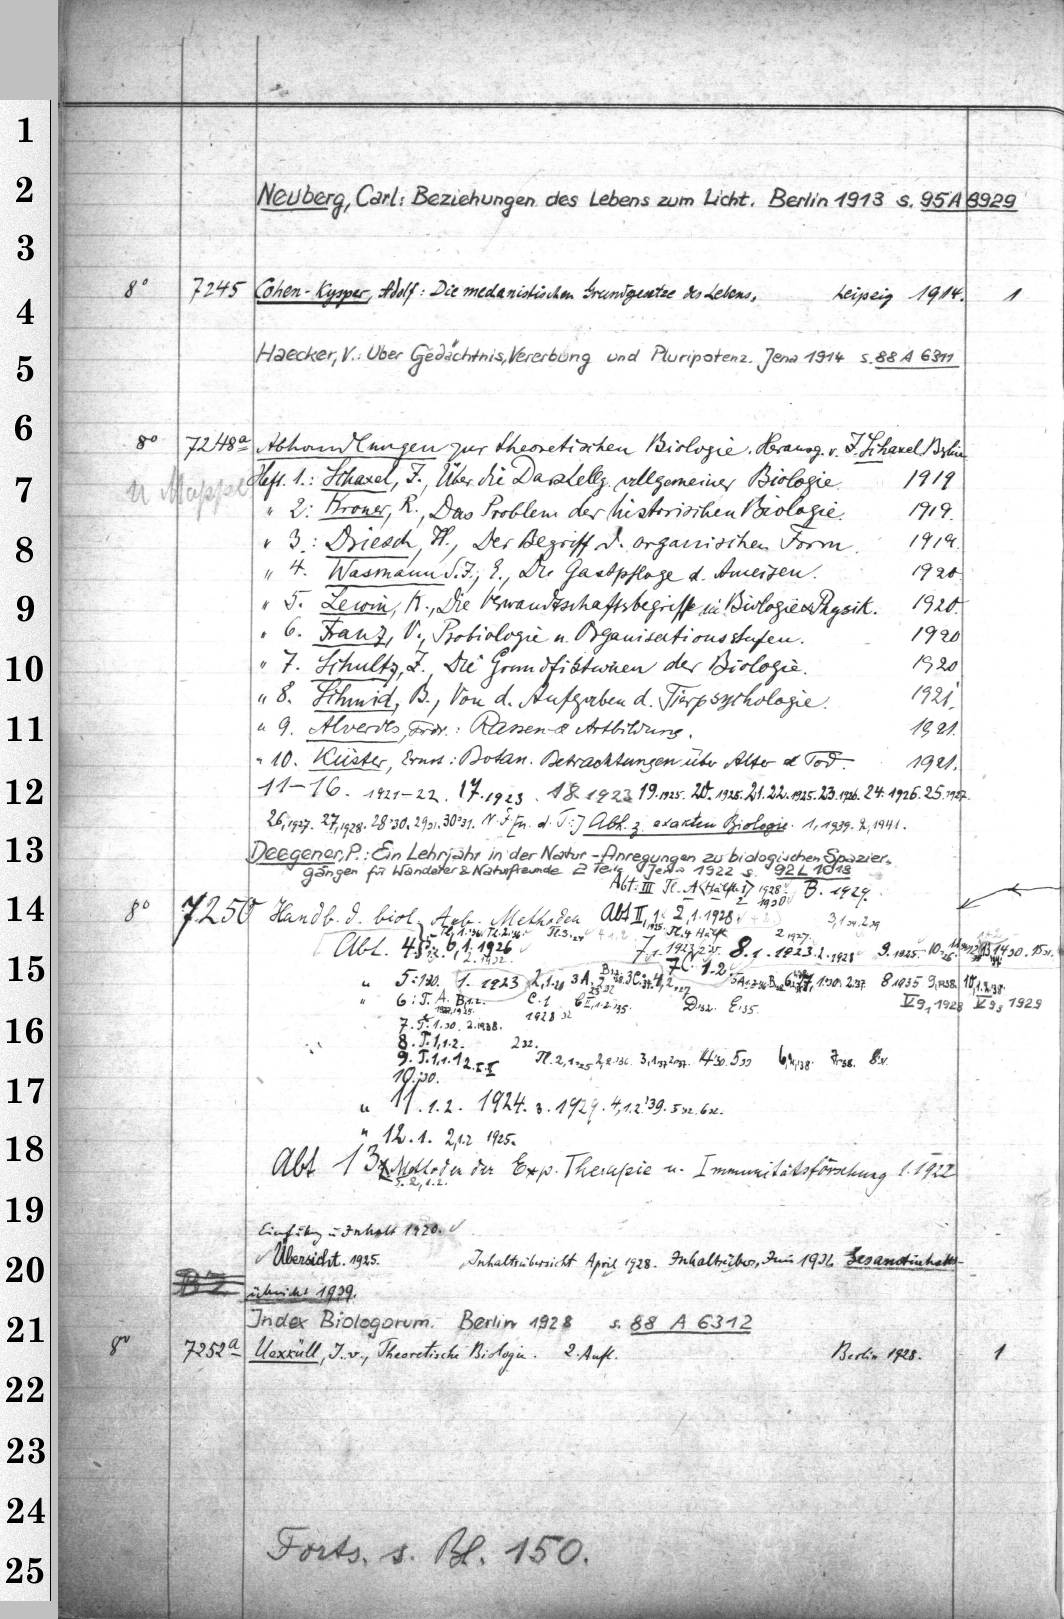 1
2
Neuberg, Carl: Beziehungen des Lebens zum Licht. Berlin 1913 s. 95 A 8929
3
8° 7245 Cohen-Kysper, Adolf: Die mechanistischen Grundgesetze des Lebens. Leipzig 1914. 1
4
5
Haecker, V.: Über Gedächtnis, Vererbung und Pluripotenz. Jena 1914 s. 88 A 6311
6
8° 7248a Abhandlungen zur theoretischen Biologie. Herausg. v. J. Schaxel, Berlin
7
u Mappe Heft 1.: Schaxel, J., Über die Darstellg. allgemeiner Biologie. 1919
" 2: Kroner, R., Das Problem der historischen Biologie. 1919.
8
" 3.: Driesch, H., Der Begriff d. organischen Form. 1919.
" 4. Wasmann S.J., E., Die Gastpflege d. Ameisen. 1920
9
" 5. Lewin, K., Die Verwandtschaftsbegriffe in Biologie & Physik. 1920
" 6. Franz, V., Probiologie u. Organisationsstufen. 1920
10
" 7. Schultz, J. Die Grundfiktionen der Biologie. 1920
" 8. Schmid, B., Von d. Aufgaben d. Tierpsychologie. 1921.
11
" 9. Alverdes, Frdr.: Rassen- & Artbildung. 1921.
" 10. Küster, Ernst: Botan. Betrachtungen über Alter & Tod. 1921.
12
11-16. 1921-22. 17. 1923. 18 1923 19. 1925. 20. 1925. 21. 22. 1925. 23. 1926. 24. 1926. 25. 1927.
26, 1927. 27, 1928. 28 '30. 29 '31. 30 '31. N. F. [u. d. T:] Abh. z. exakten Biologie. 1, 1939. 2, 1941.
13
Deegener, P.: Ein Lehrjahr in der Natur - Anregungen zu biologischen Spazier-
gängen für Wanderer & Naturfreunde 2 Teile Jena 1922 s. 92 L 1018
Abt: III Tl. A (Hälfte 1) 1928 B. 1929.
14
8° 7250 Handb. d. biol. Arb. Methoden Abt II, 1. 2, 1. 1928
Abt. 4. 6. 1. 1926 7, 1. 1923 8. 1. 1923. 2. 1928 9. 1925.
15
" 5: 1. 1923 2, 1. 3A. 8 1935 9, 1938.
" 6: T. A. B, 1.2. C. 1 D '32. E '35. IV 9, 1928 IV 9, 1929
16
7. T. 1. '30. 2. 1938.
8. T. 1, 1.2. 2 '32.
9. T. 1. 1. 1 2. I. II
17
10. '30.
" 11. 1. 2. 1924. 3. 1929. 4, 1.2 '39.
18
" 12. 1. 2, 1.2 1925.
Abt 13 Methoden der Exp. Therapie u. Immunitätsforschung 1. 1922
19
Einführg u. Inhalt 1920.
20
Übersicht. 1925. Inhaltsübersicht April 1928. Inhaltsübers. Juni 1932. Gesamtinhalts-
übersicht 1939.
21
Index Biologorum. Berlin 1928 s. 88 A 6312
8° 7252a Uexküll, J. v., Theoretische Biologie. 2. Aufl. Berlin 1928. 1
22
23
24
Forts. s. Bl. 150.
25